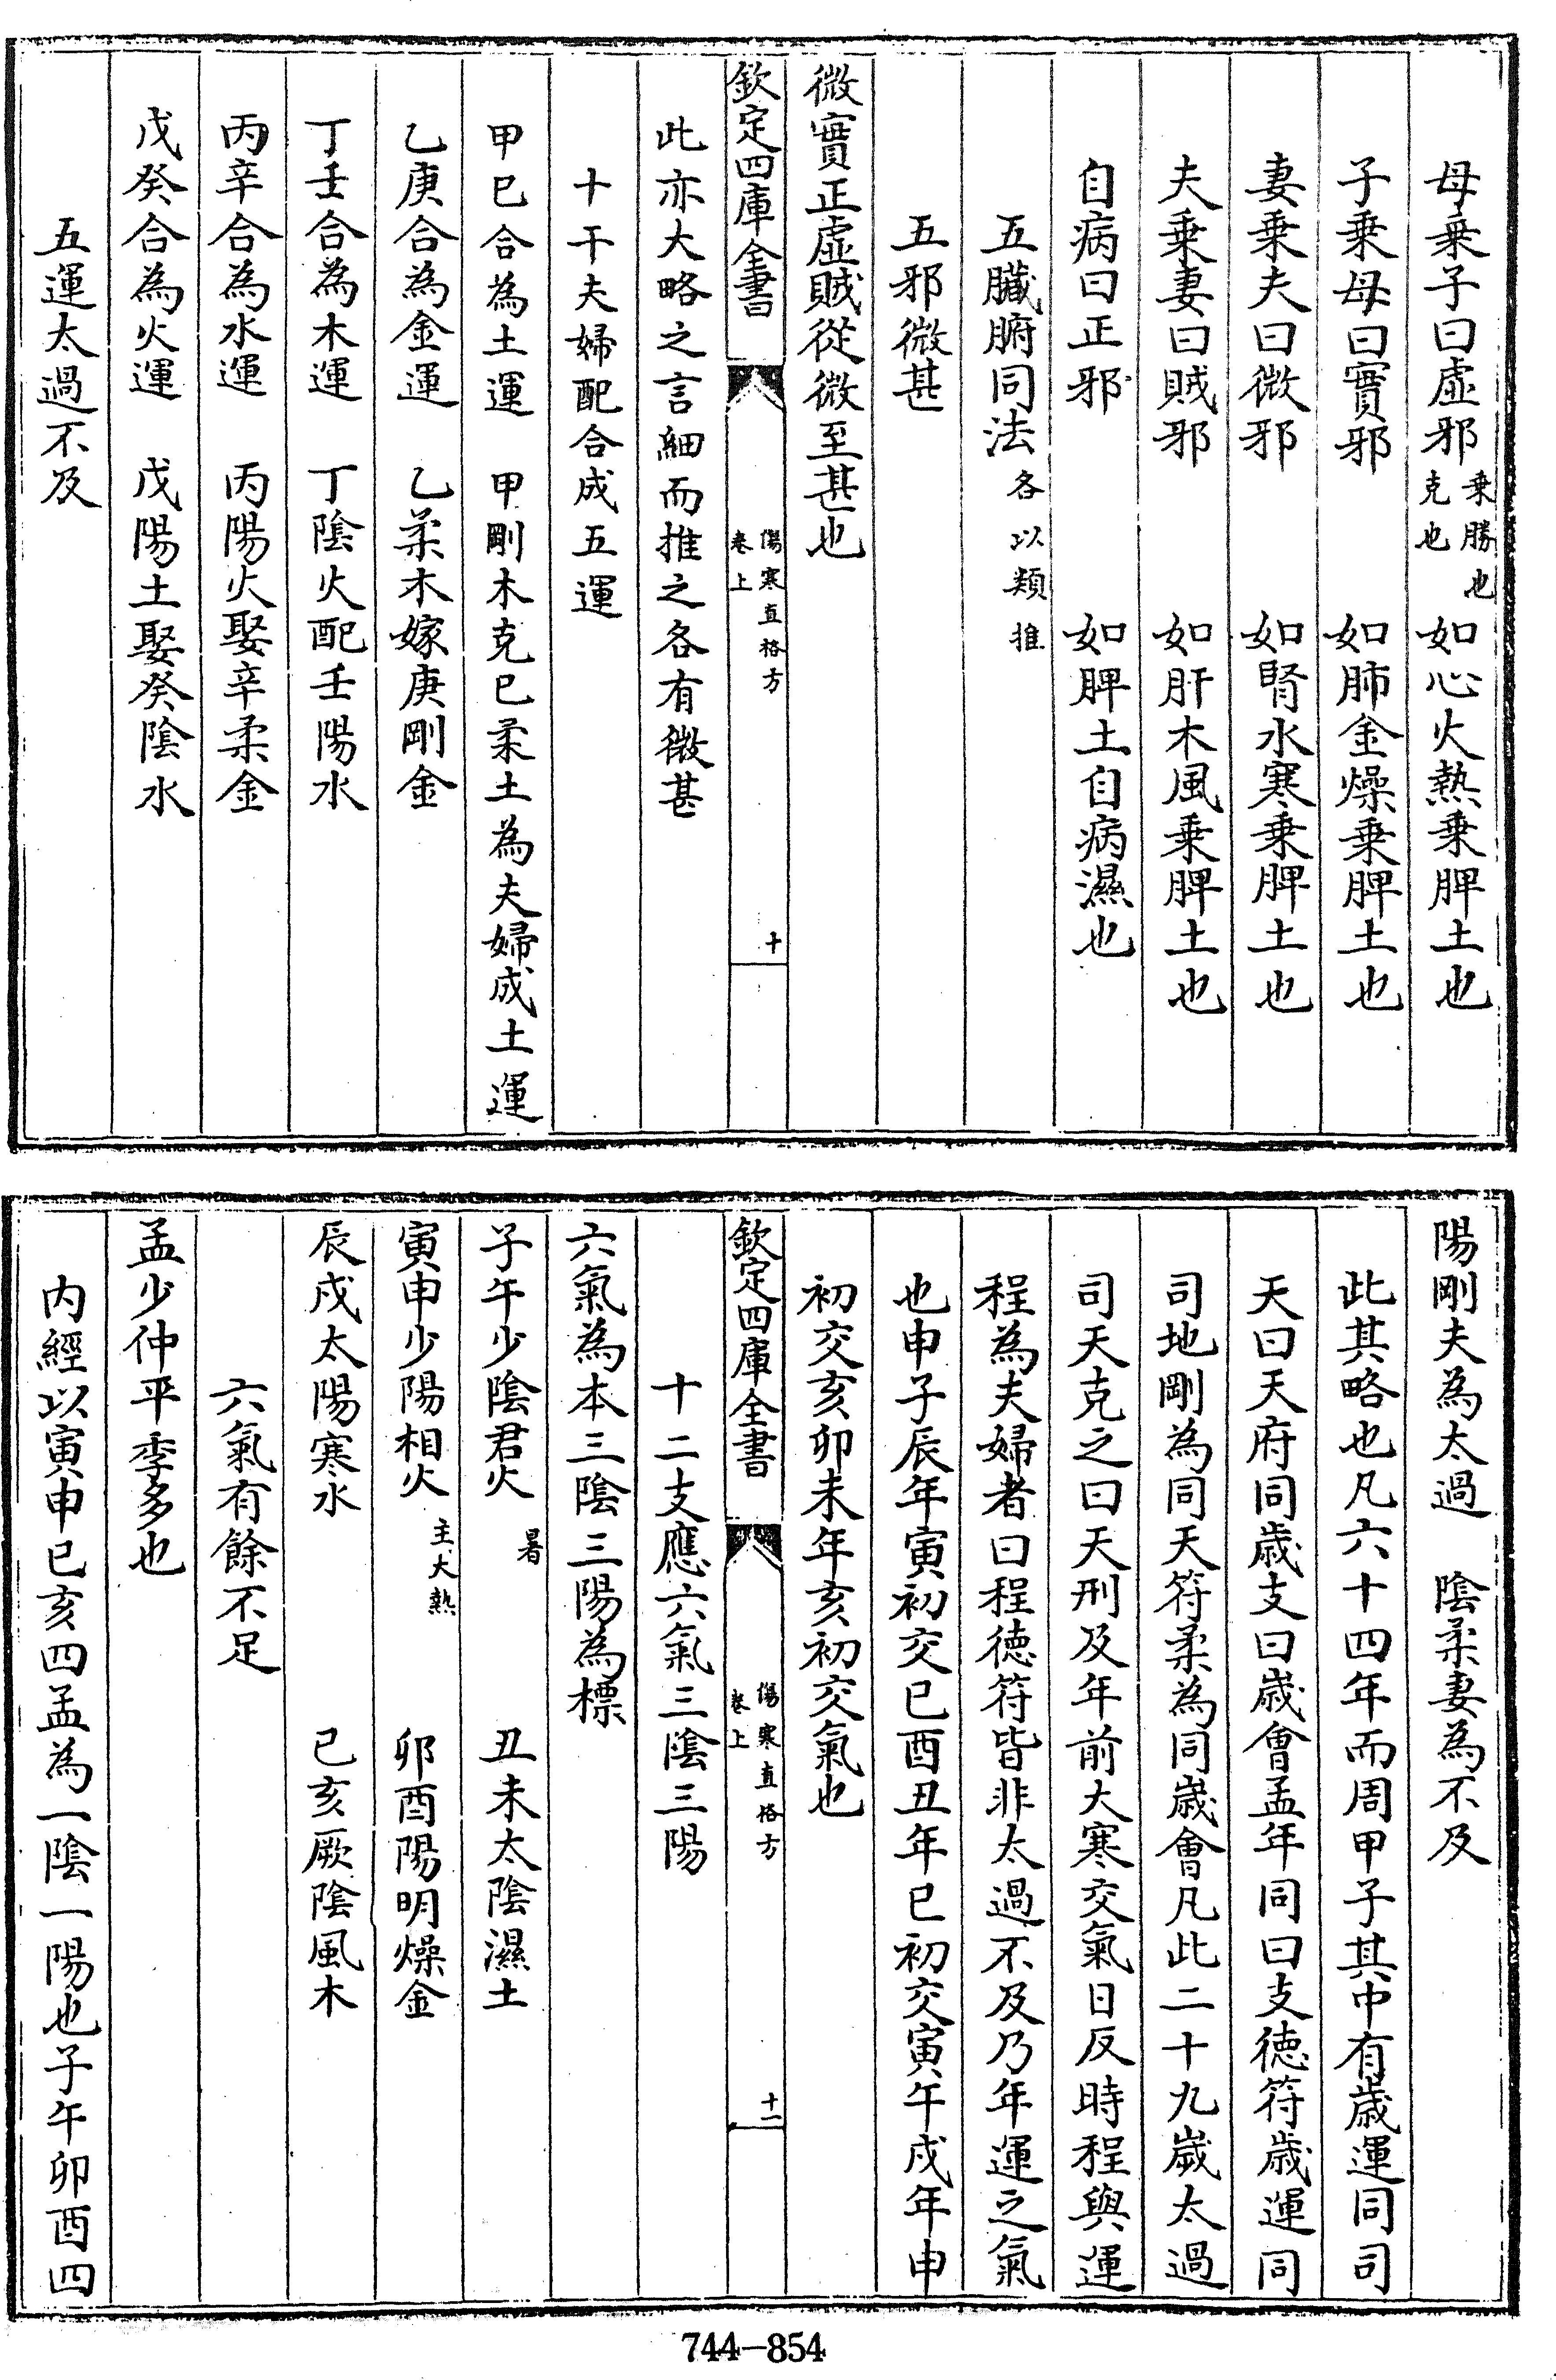 母乗子曰虚邪乗勝也克也　如心火熱乗脾土也
子乗母曰實邪　如肺金燥乗脾土也
妻乗夫曰微邪　如腎水寒乗脾土也
夫乗妻曰賊邪　如肝木風乗脾土也
自病曰正邪　如脾土自病濕也
五臟腑同法各以類推
五邪微甚
微實正虚賊從微至甚也
欽定四庫全書　傷寒直格方卷上　十
此亦大略之言細而推之各有微甚
十干夫婦配合成五運
甲已合為土運　甲剛木克已柔土為夫婦成土運
乙庚合為金運　乙柔木嫁庚剛金
丁壬合為木運　丁陰火配壬陽水
丙辛合為水運　丙陽火娶辛柔金
戊癸合為火運　戊陽土娶癸陰水
五運太過不及
陽剛夫為太過　陰柔妻為不及
此其略也凡六十四年而周甲子其中有歲運同司
天曰天府同歲支曰歲會孟年同曰支德符歲運同
司地剛為同天符柔為同歲會凡此二十九歲太過
司天克之曰天刑及年前大寒交氣日反時程與運
程為夫婦者曰程德符皆非太過不及乃年運之氣
也申子辰年寅初交已酉丑年已初交寅午戌年申
初交亥卯未年亥初交氣也
欽定四庫全書　傷寒直格方卷上　十一
十二支應六氣三陰三陽
六氣為本三陰三陽為標
子午少陰君火暑　丑未太陰濕土
寅申少陽相火主大熱　卯酉陽明燥金
辰戌太陽寒水　已亥厥陰風木
六氣有餘不足
孟少仲平季多也
内經以寅申已亥四孟為一陰一陽也子午卯酉四
744-854